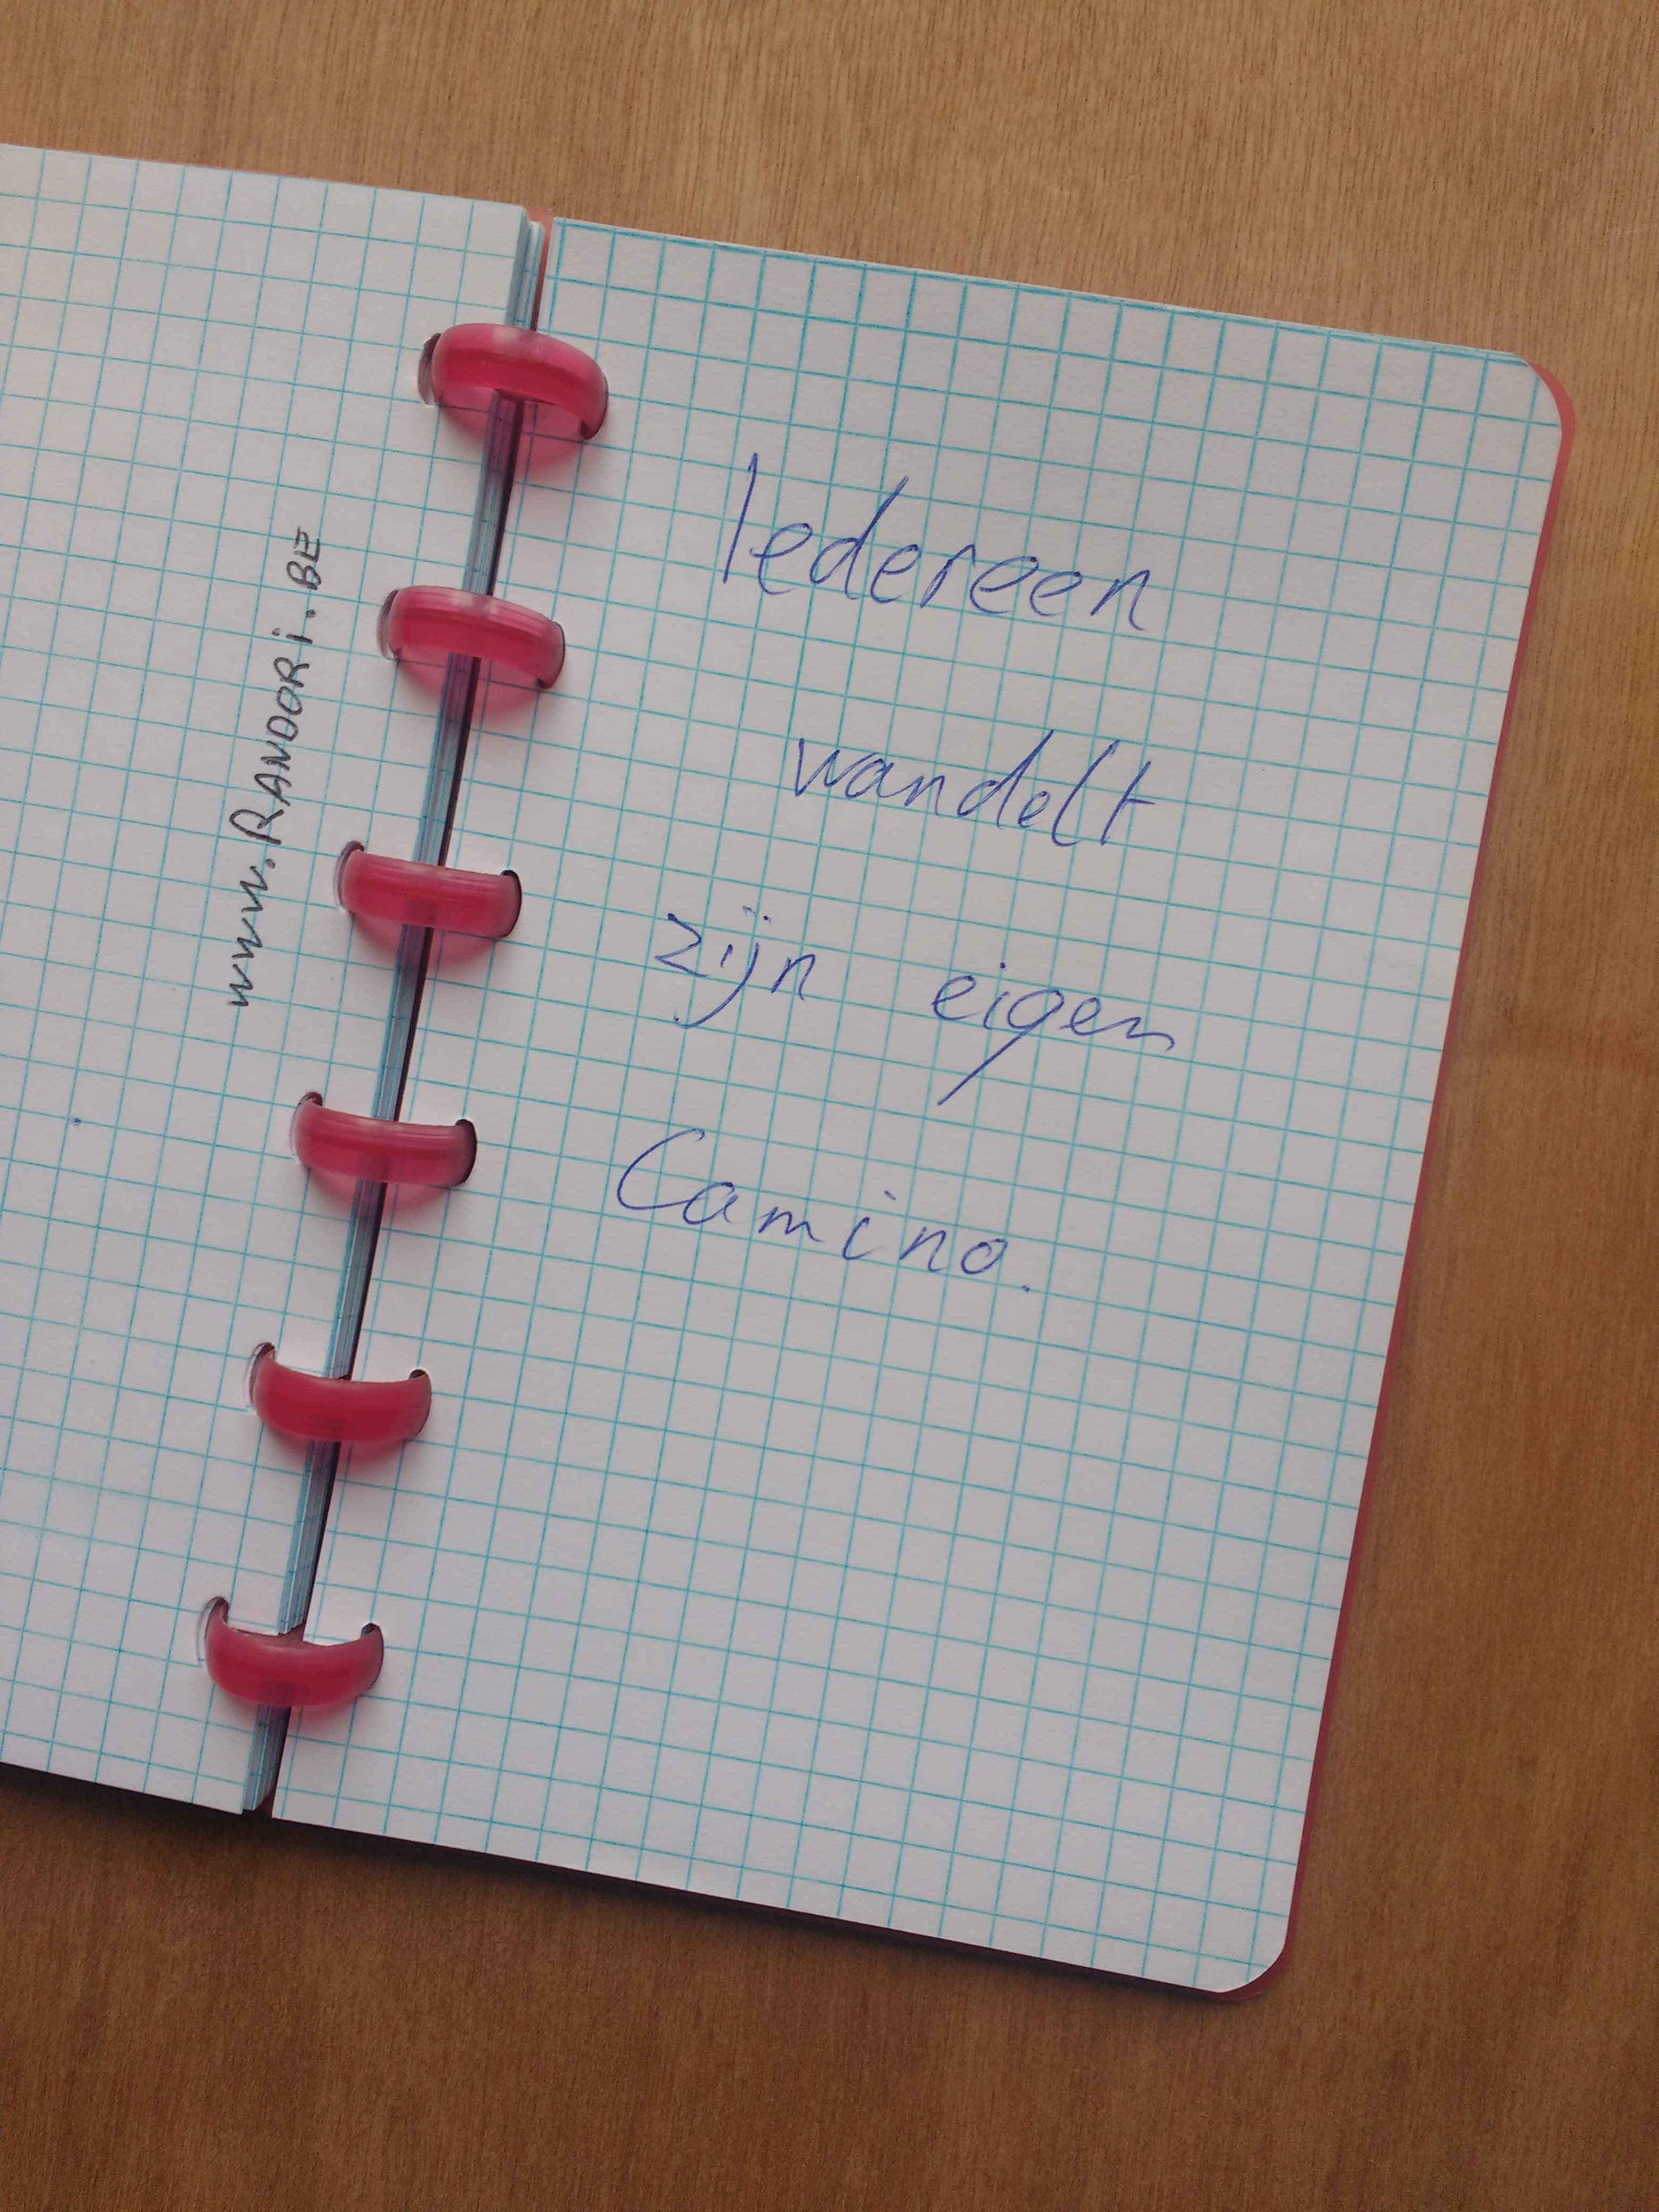 www.RANDORi.BE
Iedereen
wandelt
zijn eigen
Camino.